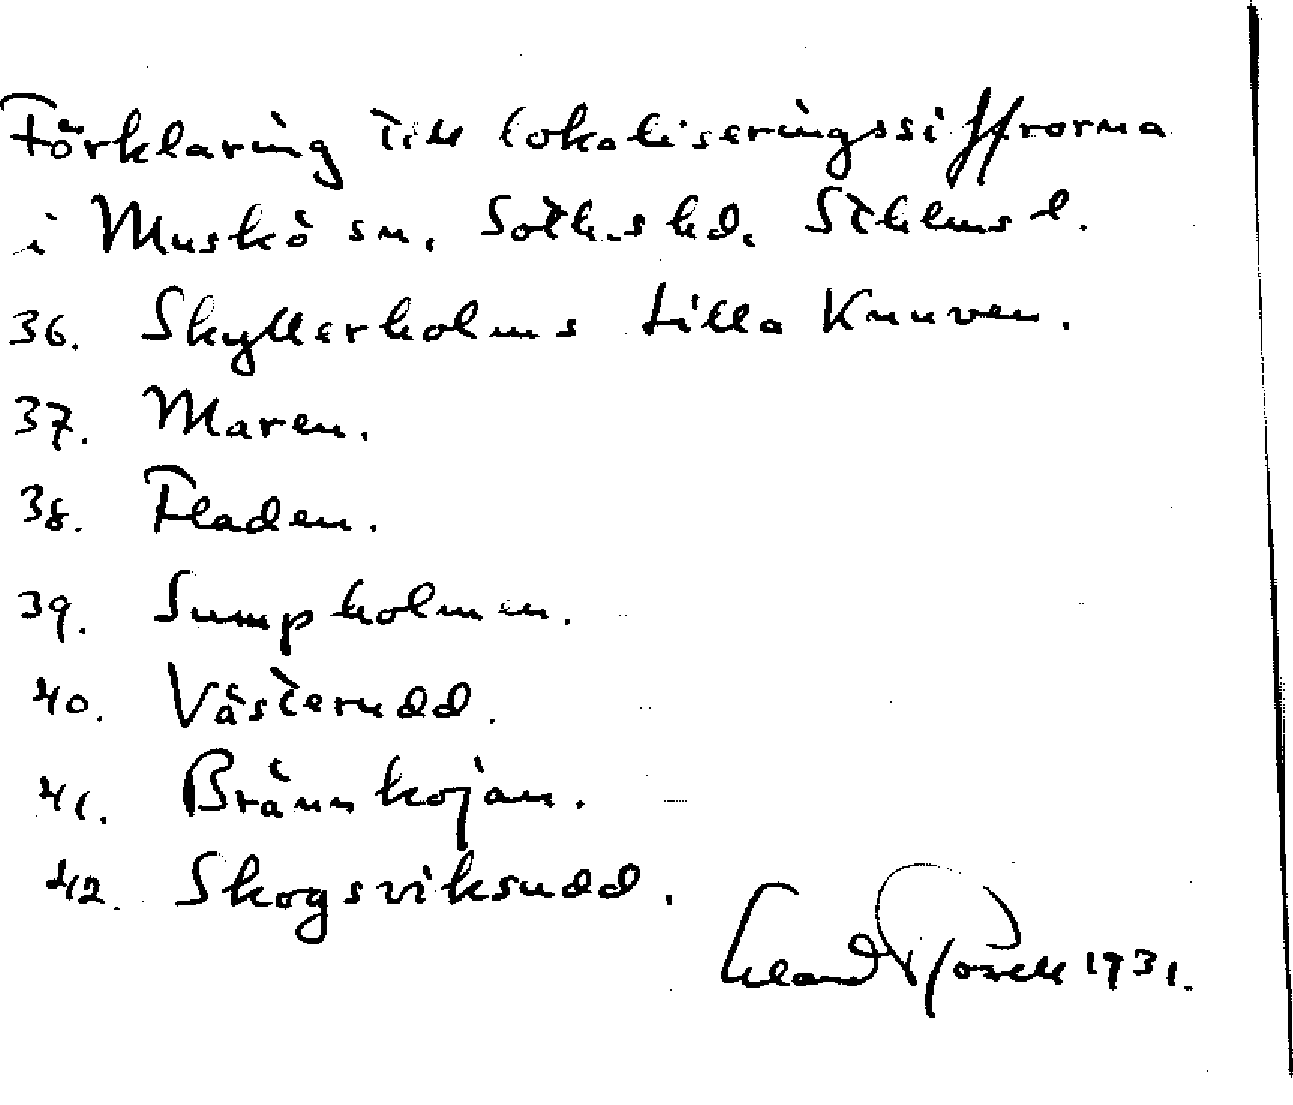 Förklaring till lokaliseringssiffrorna
i Muskö sn, Soth.s hd. Sthlms l.
36. Skyllerholms Lilla Knuven.
37. Maren.
38. Fladen.
39. Sumpholmen.
40. Västerudd.
41. Brännkojan.
42. Skogsviksudd.
1931.